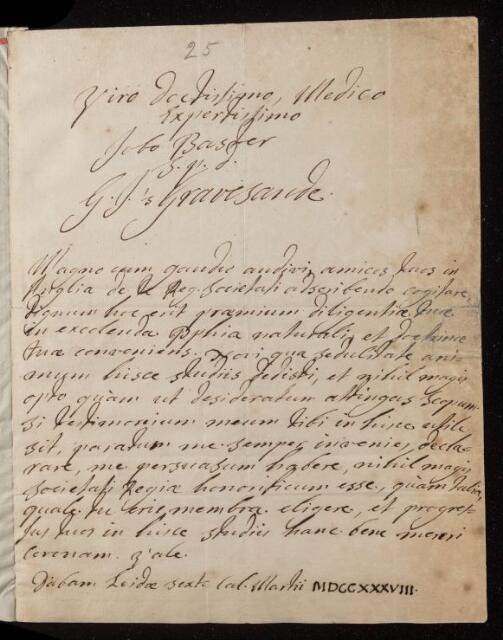 25
Viro Doctissimo, Medico
Expertissimo
Jobo Baster
S. p. d.
G. J. 's Gravesande.
Magno cum gaudio audivi amicos tuos in
Anglia de te Reg. Societati adscribendo cogitare,
dignum hoc erit præmium diligentiæ tuæ
in excolenda philosophia naturali, et doctrinæ
tuæ conveniens. Novi qua sedulitate ani-
mum hisce studiis dedisti, et nihil magis
opto quam ut desideratum attingas scopum.
si testimonium meum tibi in hisce utile
sit, paratum me semper invenies, decla-
rare, me persuasum habere, nihil magis
Societati Regiæ honorificum esse, quam talia,
qualis tu eris, membra eligere, et progres-
sus tuos in hisce studiis hanc bene mereri
coronam. Vale.
Dabam Leidæ sexto Cal. Martii MDCCXXXVIII.